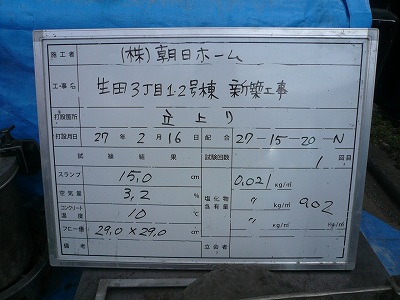 施工者 (株)朝日ホーム
工事名 生田3丁目1.2号棟 新築工事
打設箇所 立上り
打設月日 27年2月16日 配合 27-15-20-N
試験結果 試験回数 1回目
スランプ 15.0 cm 塩化物含有量 0.021 kg/m³
空気量 3.2 % 〃 kg/m³ 0.02
コンクリート温度 10 ℃ 〃 kg/m³
フロー値 29.0×29.0 cm
備考 立会者